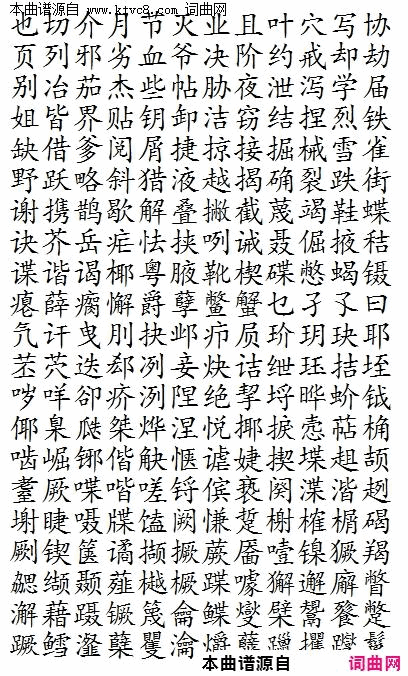 本曲谱源自 www.ktvc8.com 词曲网
也切介月节灭业且叶穴写协
页列邪劣血爷决阶约戒却劫
别冶茄杰些帖胁夜泄泻学届
姐皆界贴钥卸洁窃结捏烈铁
缺借爹阅屑捷掠接掘械雪雀
野跃略斜猎液越揭确裂跌街
谢携鹊歇解叠撇截蔑竭鞋蝶
诀芥岳疟怯挟咧诫聂倔掖秸
谍谐谒椰粤腋靴楔碟憋蝎镊
瘪薛瘸懈爵孽鳖蟹乜孑孓曰
气讦曳刖抉邺疖质玠玥玦耶
苤茓迭郄冽妾炔诘绁珏拮垤
哕咩卻疥洌陧绝挈埒晔蚧钺
倻臬瓞桀烨涅悦揶捩悫萜桷
啮崛铘偕觖惬谑婕揳堞趄颉
耋厥喋喈嗟锊傧亵阕渫湝趔
榭睫嗫牒馌阙慊踅榭榷榍碣
劂锲箧谲撷撅蕨靥噎镍獗羯
勰缬颞薤樾橛蹀噱獬邂廨瞥
澥藉蹑镢篾龠鲽燮檗鷽餮蹩
蹶鳕瀣蘖矍瀹爝
本曲谱源自
词曲网